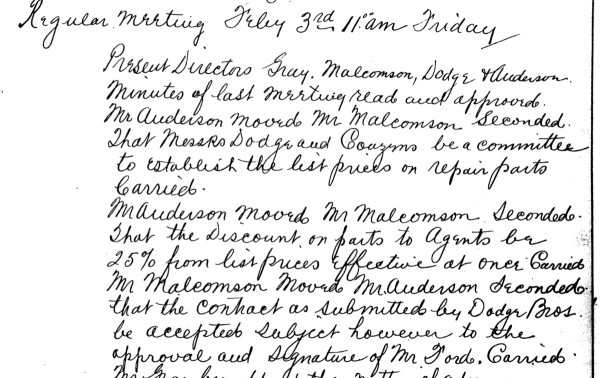 Regular Meeting Feby 3rd 11 am Friday
Present Directors Gray. Malcomson, Dodge & Anderson.
Minutes of last Meeting read and approved.
Mr Anderson Moved Mr Malcomson Seconded.
That Messrs Dodge and Couzens be a committee
to establish the list prices on repair parts
Carried.
Mr Anderson Moved Mr Malcomson Seconded.
That the Discount on parts to Agents be
25% from list prices Effective at once Carried
Mr Malcomson Moved Mr. Anderson Seconded
that the Contract as submitted by Dodge Bros.
be accepted subject however to the
approval and signature of Mr Ford. Carried.